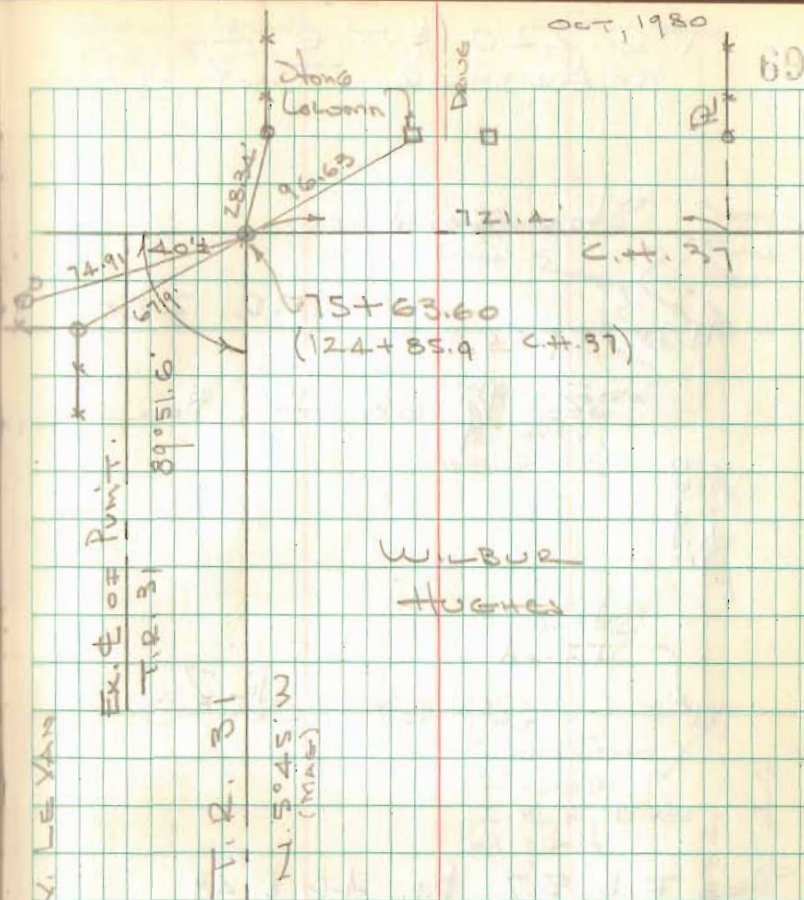 OCT, 1980
69
Stone
Column
DRIVE
28.34'
96.63
721.4'
C.H. 37
74.91'
40'±
67.9'
75+63.60
(124+85.9 C.H. 37)
89°51.6'
Ex. ℄ OF Pvm't.
T.R. 31
WILBUR
HUGHES
T.R. 31
N. 5°45' W
(MAG)
V. LE VAN